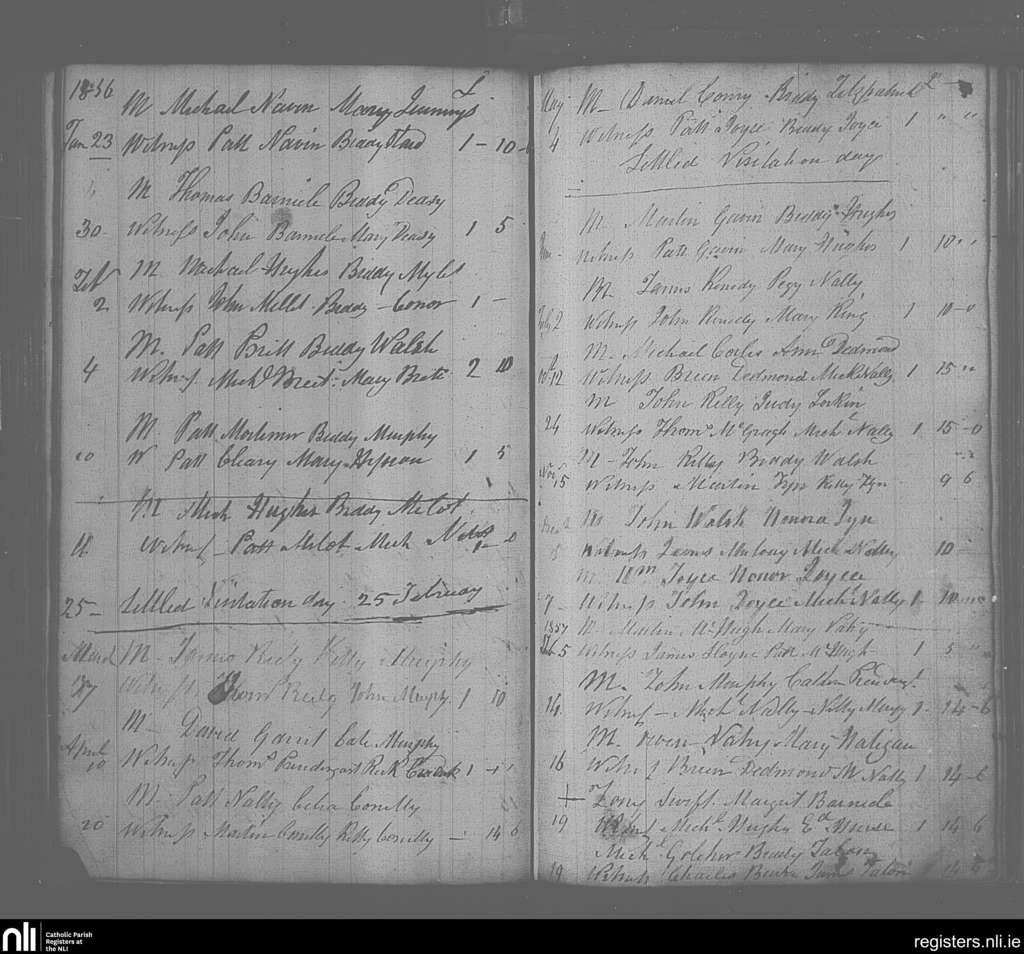 1856
M Michael Navin Mary Jennings £
Jan 23 Witness Patt Navin Biddy 1 - 10 -
M Thomas Barnicle Biddy Deasy
30 Witness John Barnicle Mary Deasy 1 5
Feb M Michael Hughes Biddy Mylet
2 Witness John Millet Biddy Conor 1 -
M. Patt Britt Biddy Walsh
4 Witness Michl Breet Mary Brett 2 10
M. Patt Mortimer Biddy Murphy
10 W Patt Cleary Mary 1 5
M Mick Hughes Biddy Melot
11 Witness Patt Melot Mick
25 - Settled Visitation day 25 February
March M - James Reily Kitty Murphy
Witness Thoms Reily John Murphy 1 10
M - David Garret Cate Murphy
April 10 Witness Thoms Prendergast 1 - -
M. Patt Nally Celia Conelly
20 Witness Martin Conelly Kitty Conelly - 14 6
May M - Daniel Conry Biddy Fitzpatrick £
4 Witness Patt Joyce Biddy Joyce 1 " "
Settled Visitation day
M. Martin Gavin Biddy Hughes
Witness Patt Gavin Mary Hughes 1 10 " "
M James Kenedy Pegy Nally
July 2 Witness John Kenedy Mary King 1 10 - 0
M. Michael Corles Ann Dedmond
12 Witness Breen Dedmond Mick Nally 1 15 "
M John Kelly Judy Lorkin
24 Witness Thoms McGragh Mich Nally 1 15 - 0
M - John Kelly Biddy Walsh
Nov 15 Witness Martin Fyn Kitty Fyn 9 6
M John Walsh Honora Fyn
5 Witness James Mulony Mich Nally 10 -
M Wm Joyce Honor Joyce
7 - Witness John Joyce Mich Nally 1 10
1857 M Martin McHugh Mary Vahy
Feb 5 Witness James Patt McHugh 1 5 "
M. John Murphy
14 Witness - Michl Nally Nelly 1 - 14 - 6
M. Owen Vahy Mary Haligan
16 Witness Breen Dedmond M Nally 1 14 - 6
+ Tony Swift Margret Barnicle
19 Michl Hughs Ed 1 14 6
Michl Golcher Biddy
19 Witness Charles James
nli Catholic Parish
Registers at
the NLI
registers.nli.ie